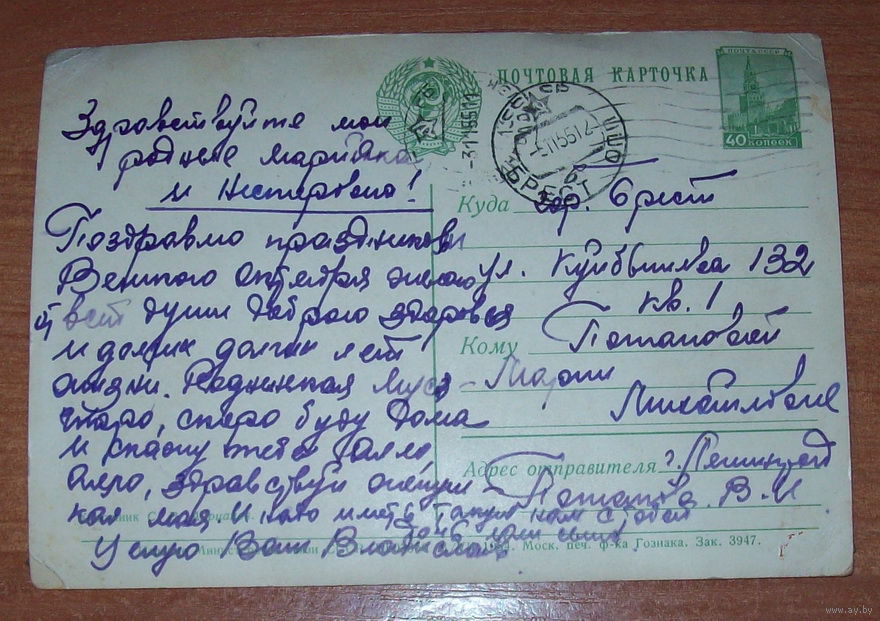 ПОЧТОВАЯ КАРТОЧКА
ПОЧТА СССР
40 КОПЕЕК
БРЕСТ
Здравствуйте мои
родные Марийка
и Нестеровна!
Поздравляю праздником
Великого октября желаю
от всей души доброго здоровья
и долгих долгих лет
жизни. Родненькая Муся
скоро, скоро буду дома
и скажу тебе алло,
алло, здравствуй
моя и
Целую Ваш
Куда гор. Брест
ул. Куйбышева 132
кв. 1
Кому Потаповой
Марии
Михайловне
Адрес отправителя г. Ленинград
Потапова В. И
Моск. печ. ф-ка Гознака. Зак. 3947.
www.ay.by